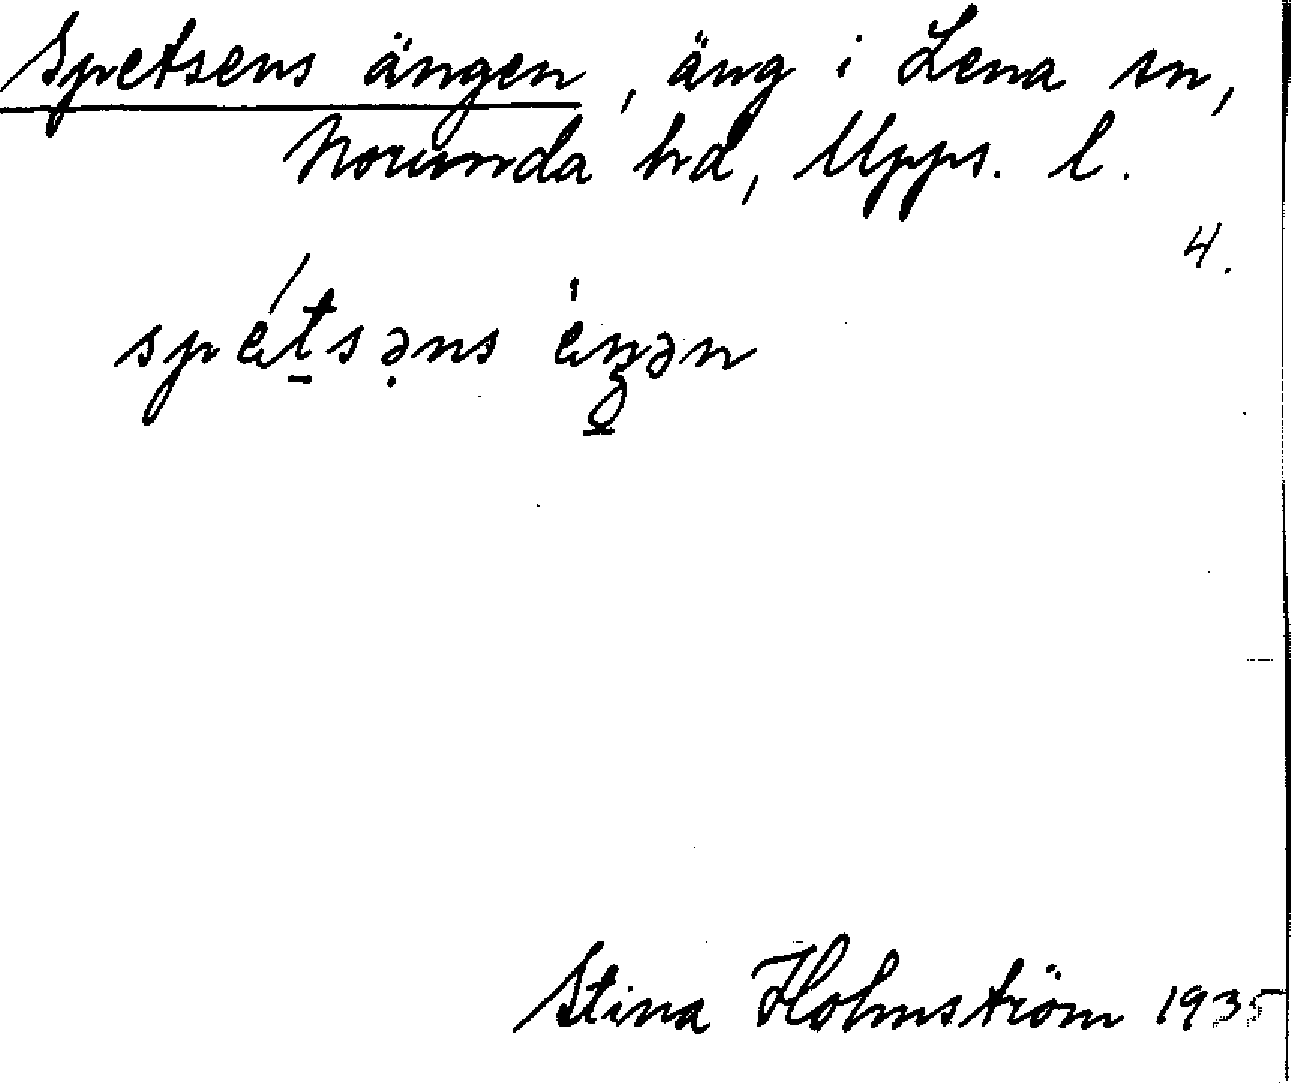 Spetsens ängen, äng i Lena sn,
Norunda hd, Upps. l.
4.
spétsəns éŋən
Stina Holmström 1935